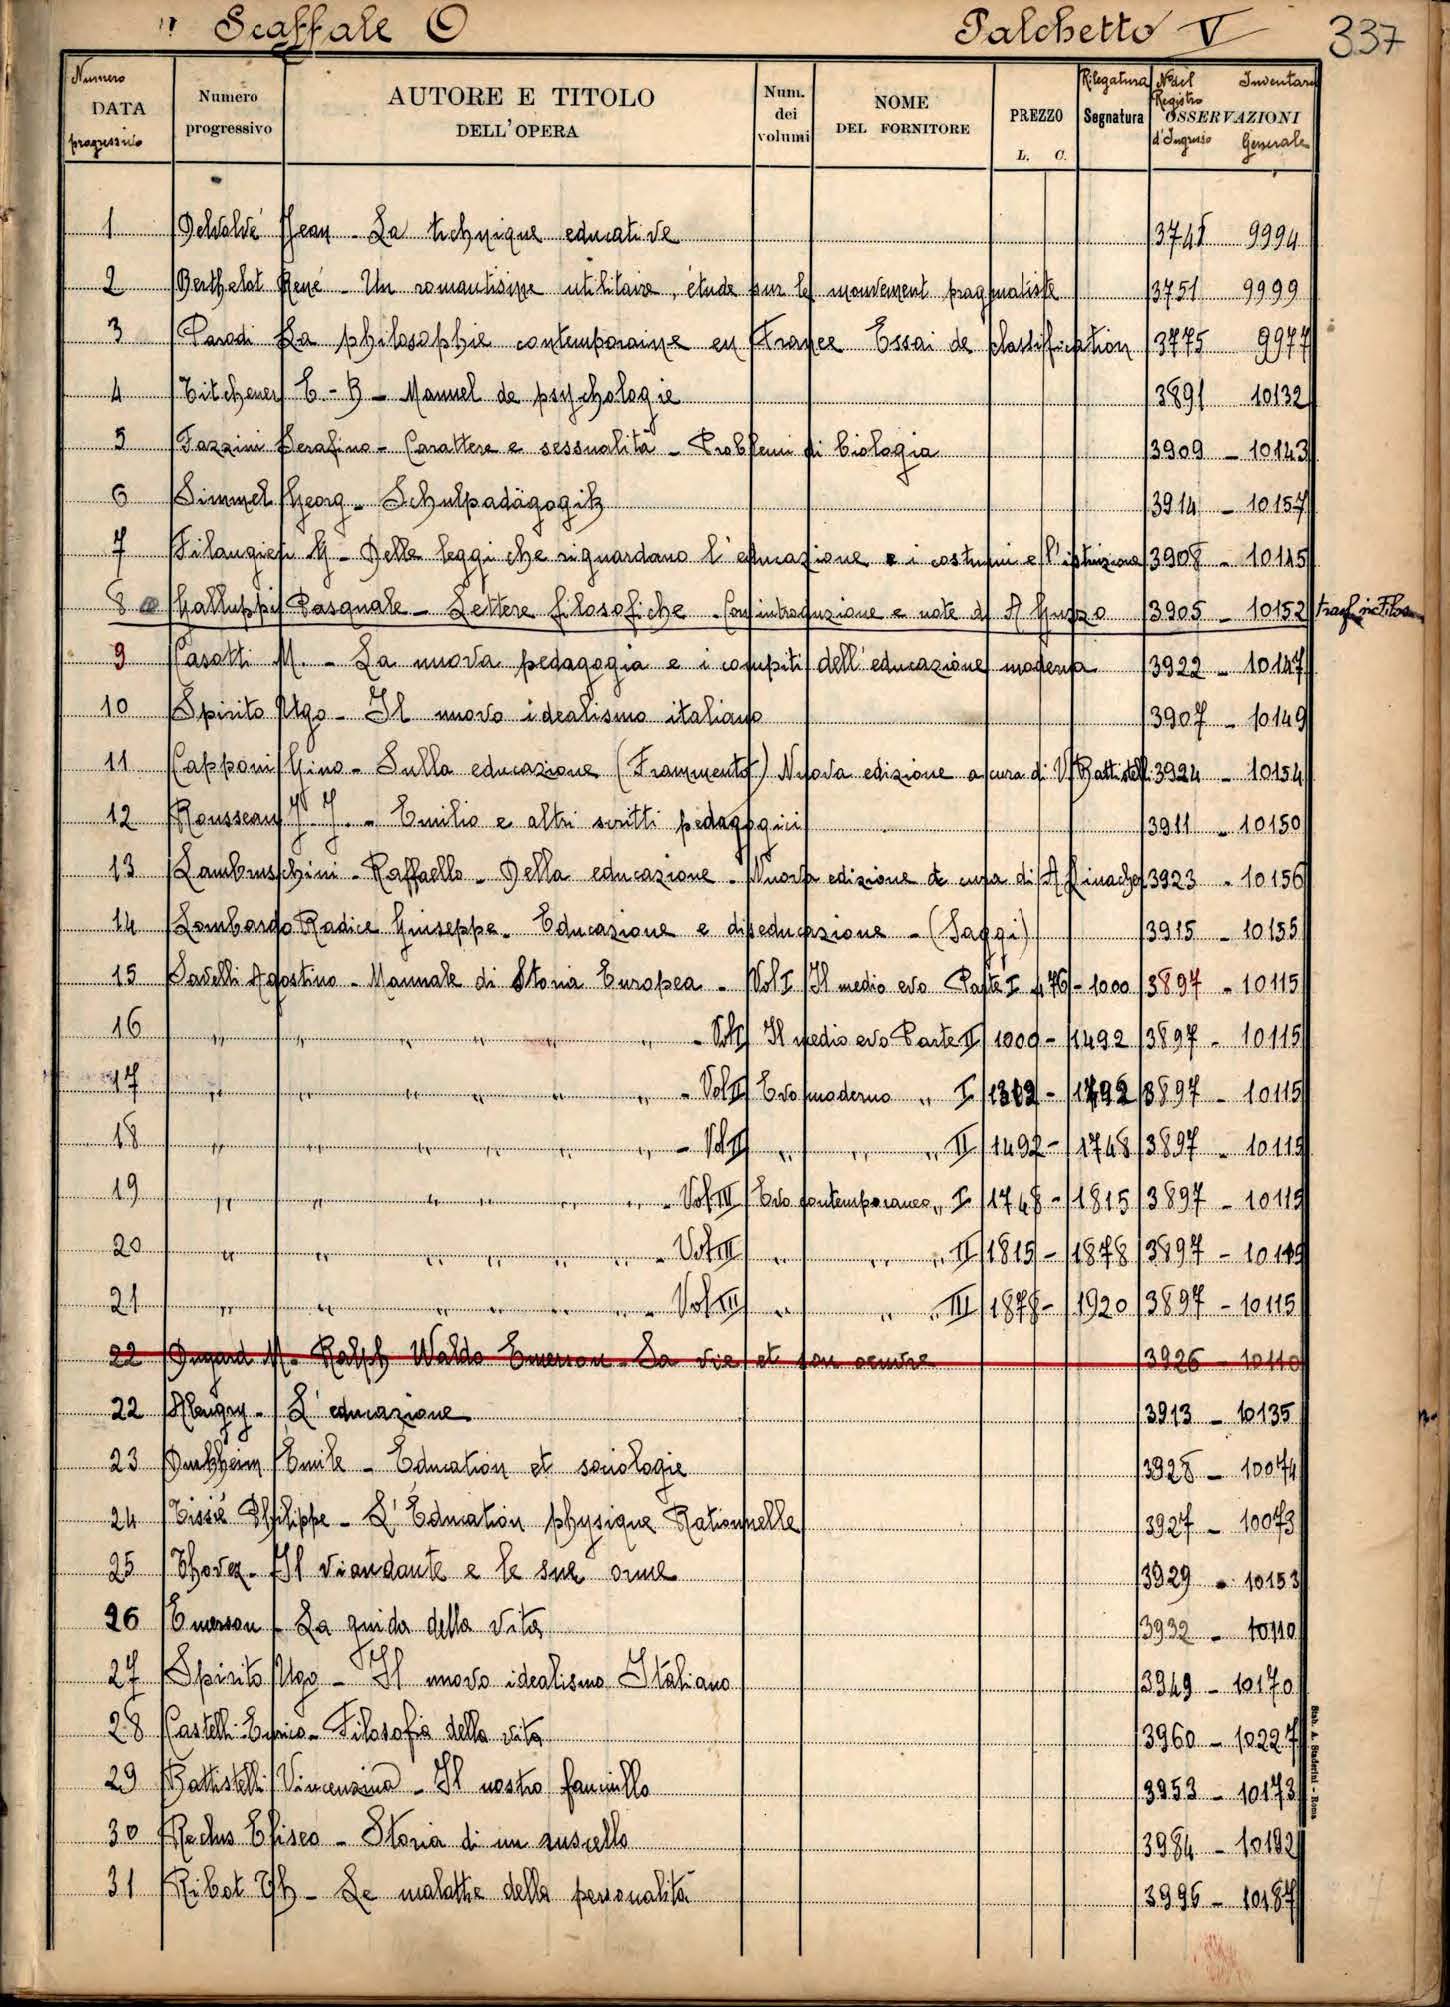 " Scaffale O Palchetto V 337
Numero DATA progressivo
Numero progressivo
AUTORE E TITOLO DELL'OPERA
Num. dei volumi
NOME DEL FORNITORE
PREZZO L. C.
Rilegatura Segnatura
N° del Registro d'Ingresso OSSERVAZIONI Inventario Generale
1 Delvolvé Jean - La technique educative 3748 9994
2 Berthelot René - Un romantisme utilitaire, étude sur le mouvement pragmatiste 3751 9999
3 Parodi La philosophie contemporaine en France Essai de classification 3775 9977
4 Titchener E - B - Manuel de psychologie 3891 10132
5 Fazzini Serafino - Carattere e sessualità - Problemi di biologia 3909 - 10143
6 Simmel Georg - Schulpadägogik 3914 - 10157
7 Filangieri G - Delle leggi che riguardano l'educazione e i costumi e l'istruzione 3908 - 10145
8 Galluppi Pasquale - Lettere filosofiche - Con introduzione e note di A Guzzo 3905 - 10152 trasf. in Filos
9 Casotti M. - La nuova pedagogia e i compiti dell'educazione moderna 3922 - 10147
10 Spirito Ugo - Il nuovo idealismo italiano 3907 - 10149
11 Capponi Gino - Sulla educazione (Frammento) Nuova edizione a cura di V. Battistelli 3924 - 10154
12 Rousseau J. J. - Emilio e altri scritti pedagogici 3911 - 10150
13 Lambruschini - Raffaello - Della educazione - Nuova edizione a cura di A Linacher 3923 - 10156
14 Lombardo Radice Giuseppe - Educazione e diseducazione - (Saggi) 3915 - 10155
15 Savelli Agostino - Manuale di Storia Europea - Vol I Il medio evo Parte I 476 - 1000 3897 - 10115
16 " " " " " " - Vol I Il medio evo Parte II 1000 - 1492 3897 - 10115
17 " " " " " " - Vol II Evo moderno " I 3897 - 10115
18 " " " " " " - Vol II " " " II 1492 - 1748 3897 - 10115
19 " " " " " " - Vol III Evo contemporaneo " I 1748 - 1815 3897 - 10115
20 " " " " " " - Vol III " " " II 1815 - 1878 3897 - 10115
21 " " " " " " - Vol III " " " III 1878 - 1920 3897 - 10115
22 Dugard M - Ralph Waldo Emerson - Sa vie et son oeuvre 3926 - 10110
22 Albugry - L'educazione 3913 - 10135
23 Durkheim Emile - Education et sociologie 3928 - 10074
24 Tissié Philippe - L'Éducation physique Rationnelle 3927 - 10073
25 Thovez - Il viandante e le sue orme 3929 - 10153
26 Emerson - La guida della vita 3932 - 10110
27 Spirito Ugo - Il nuovo idealismo Italiano 3949 - 10170
28 Castelli Enrico - Filosofia della vita 3960 - 10227
29 Battistelli Vincenzina - Il nostro fanciullo 3953 - 10173
30 Reclus Eliseo - Storia di un ruscello 3984 - 10192
31 Ribot Th - Le malattie della personalità 3996 - 10187
Stab. A. Staderini - Roma